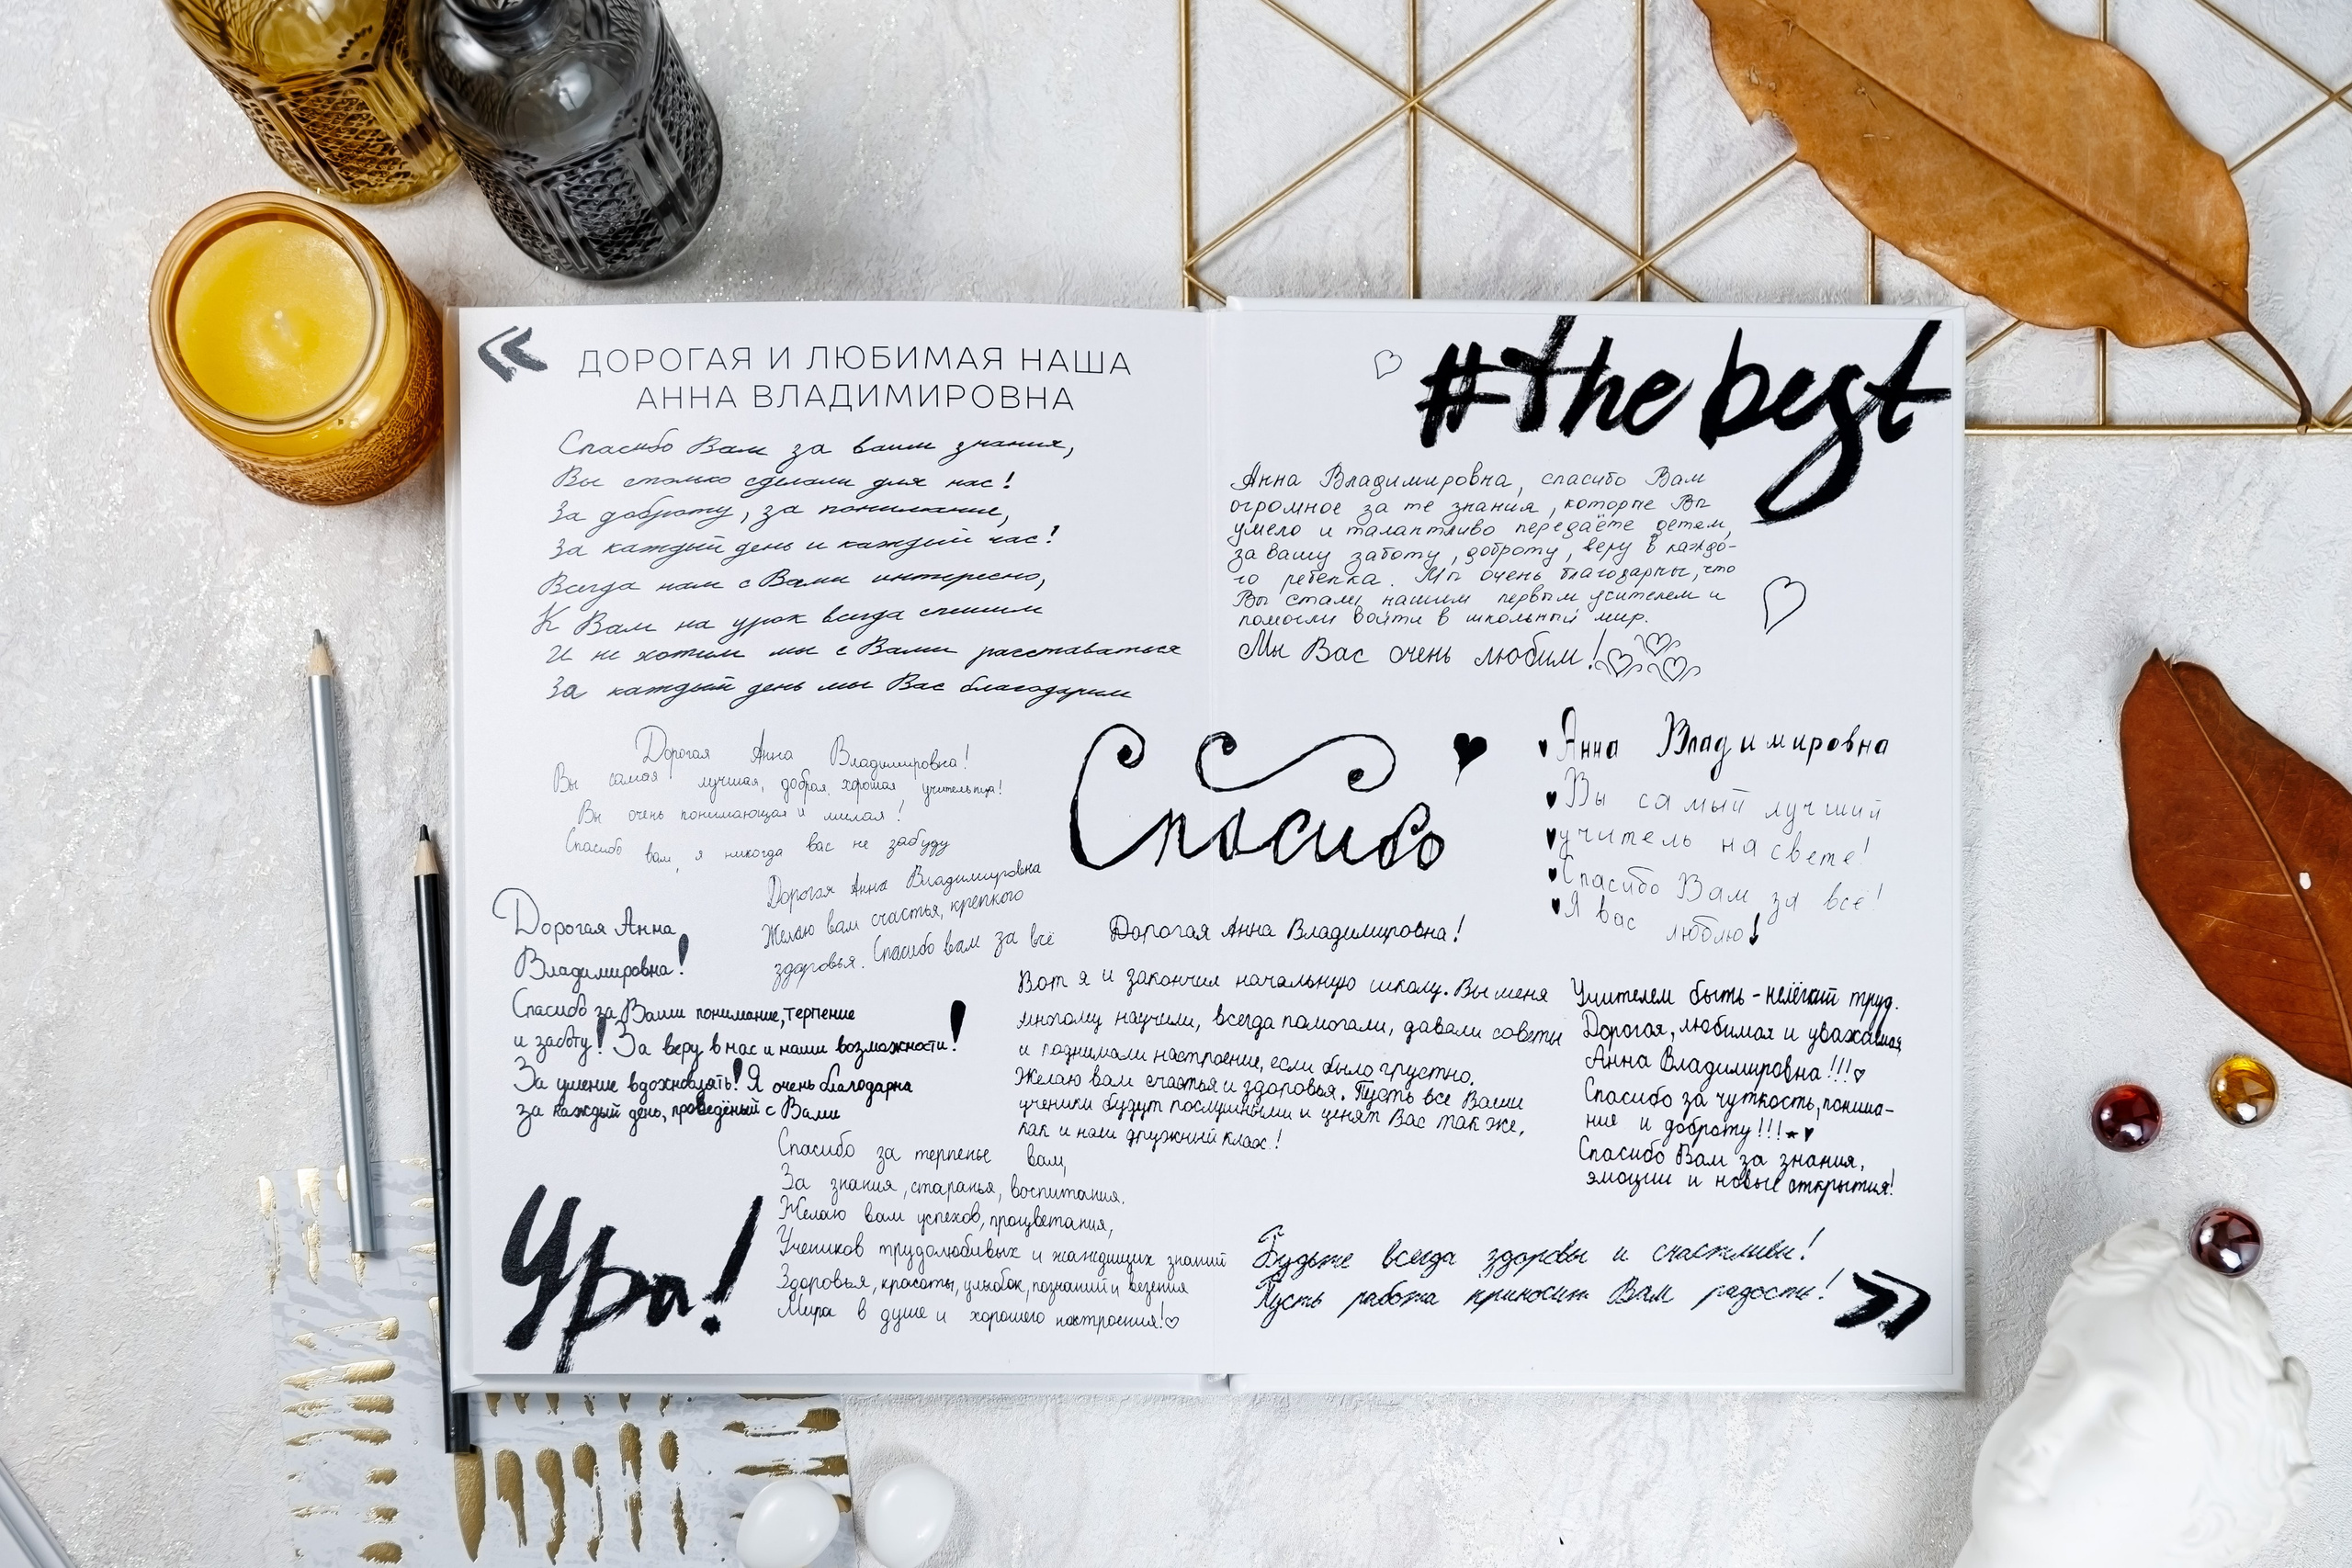 «
ДОРОГАЯ И ЛЮБИМАЯ НАША
АННА ВЛАДИМИРОВНА
Спасибо Вам за ваши знания,
Вы столько сделали для нас!
За доброту, за понимание,
За каждый день и каждый час!
Всегда нам с Вами интересно,
К Вам на урок всегда спешим
И не хотим мы с Вами расставаться
За каждый день мы Вас благодарим
Дорогая Анна Владимировна!
Вы самая лучшая, добрая, хорошая учительница!
Вы очень понимающая и милая!
Спасибо вам, я никогда вас не забуду
Дорогая Анна Владимировна
Желаю вам счастья, крепкого
здоровья. Спасибо вам за всё
Дорогая Анна
Владимировна!
Спасибо за Ваши понимание, терпение
и заботу! За веру в нас и наши возможности!
За умение вдохновлять! Я очень благодарна
за каждый день, проведёный с Вами
Спасибо за терпенье вам,
За знания, старанья, воспитания.
Желаю вам успехов, процветания,
Учеников трудолюбивых и жаждищих знаний
Здоровья, красоты, улыбок, познаний и везения
Мира в душе и хорошего настроения!♡
Ура!
#the best
Анна Владимировна, спасибо Вам
огромное за те знания, которые Вы
умело и талантливо передаёте детям,
за вашу заботу, доброту, веру в каждо-
го ребенка. Мы очень благодарны, что
Вы стали нашим первым учителем и
помогли войти в школьный мир.
Мы Вас очень любим!
Спасибо
♥Анна Владимировна
♥Вы самый лучший
♥учитель на свете!
♥Спасибо Вам за все!
♥Я вас люблю!
Дорогая Анна Владимировна!
Вот я и закончил начальную школу. Вы меня
многому научили, всегда помогали, давали советы
и поднимали настроение, если было грустно.
Желаю вам счастья и здоровья. Пусть все Ваши
ученики будут послушными и ценят Вас так же,
как и наш дружный класс!
Учителем быть - нелёгкий труд.
Дорогая, любимая и уважаемая
Анна Владимировна!!!♡
Спасибо за чуткость, понима-
ние и доброту!!!★♥
Спасибо Вам за знания,
эмоции и новые открытия!
Будьте всегда здоровы и счастливы!
Пусть работа приносит Вам радость!
»